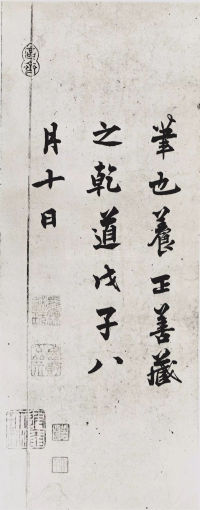 筆也養正善藏
之乾道戊子八
月十日